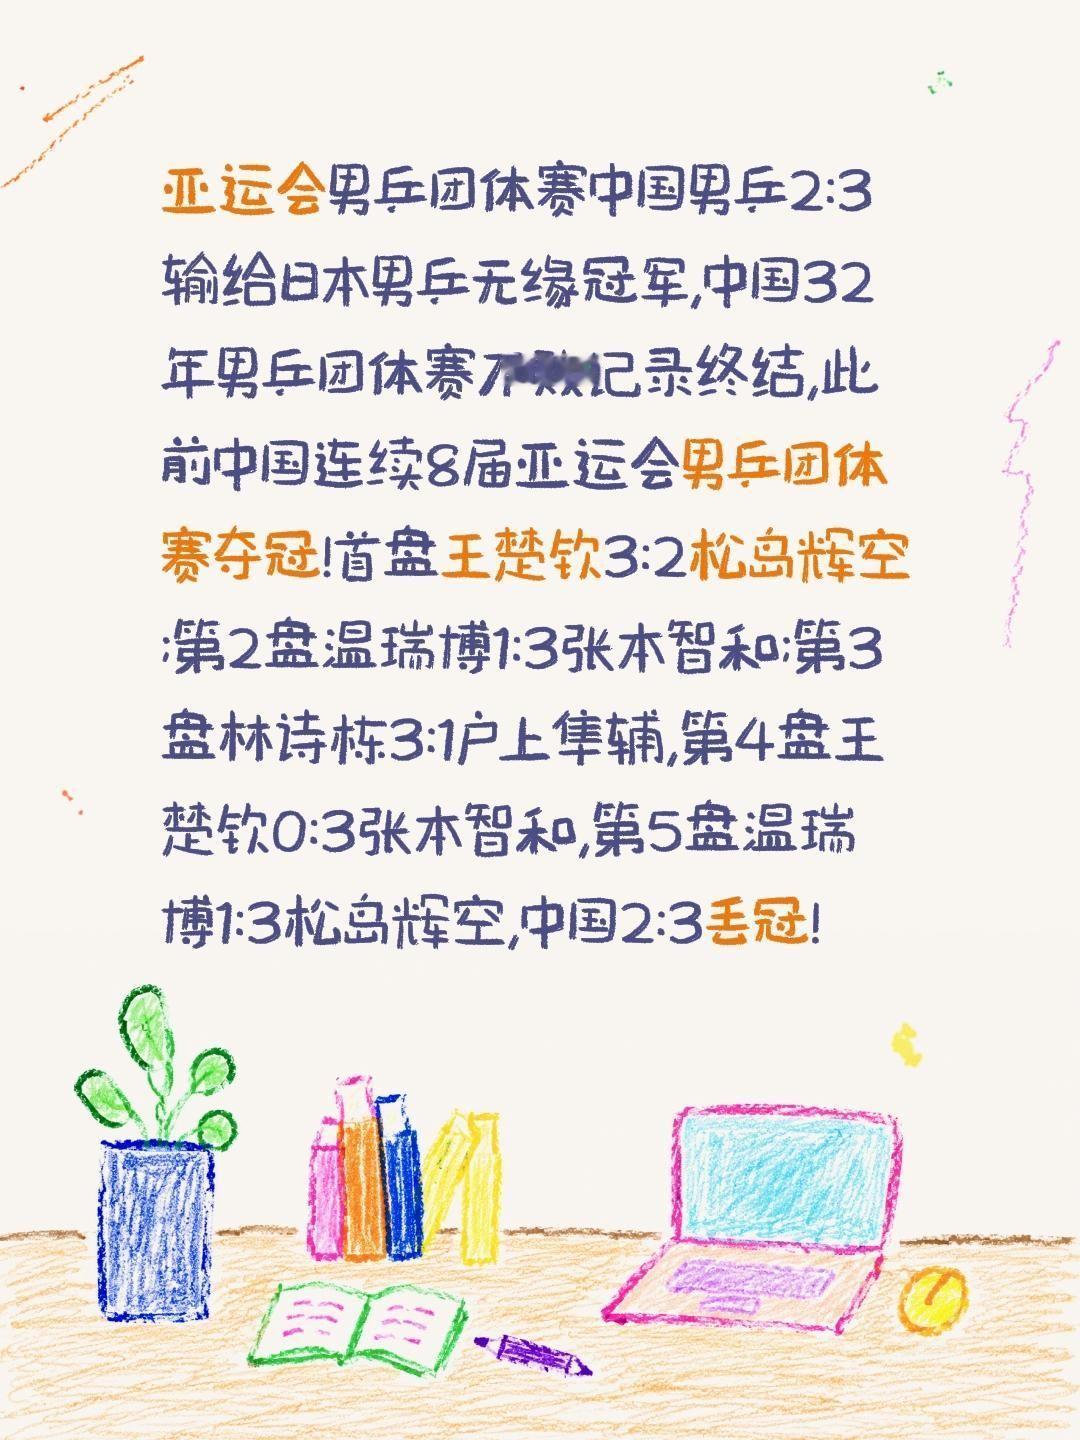 亚运会男乒团体赛中国男乒2:3
输给日本男乒无缘冠军,中国32
年男乒团体赛记录终结,此
前中国连续8届亚运会男乒团体
赛夺冠!首盘王楚钦3:2松岛辉空
;第2盘温瑞博1:3张本智和;第3
盘林诗栋3:1户上隼辅,第4盘王
楚钦0:3张本智和,第5盘温瑞
博1:3松岛辉空,中国2:3丢冠!